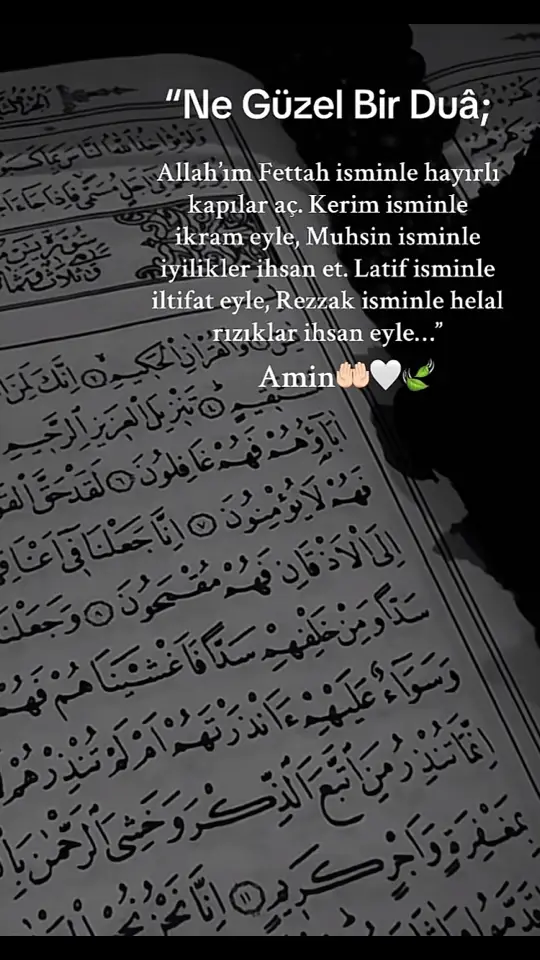 “Ne Güzel Bir Duâ;
Allah’ım Fettah isminle hayırlı
kapılar aç. Kerim isminle
ikram eyle, Muhsin isminle
iyilikler ihsan et. Latif isminle
iltifat eyle, Rezzak isminle helal
rızıklar ihsan eyle...”
Amin🤲🏻🤍🍃
وَالْقُرْاٰنِ الْحَكٖيمِ ٢ اِنَّكَ لَمِنَ
تَنْزٖيلَ الْعَزٖيزِ الرَّحٖيمِ
اٰبَاؤُ۬هُمْ فَهُمْ غَافِلُونَ ٦ لَقَدْ حَقَّ الْقَوْ
فَهُمْ لَا يُؤْمِنُونَ ٧ اِنَّا جَعَلْنَا فٖٓى اَعْنَاقِ
اِلَى الْاَذْقَانِ فَهُمْ مُقْمَحُونَ ٨ وَجَعَلْنَا
سَدًّا وَمِنْ خَلْفِهِمْ سَدًّا فَاَغْشَيْنَاهُمْ فَهُمْ
وَسَوَٓاءٌ عَلَيْهِمْ ءَاَنْذَرْتَهُمْ اَمْ لَمْ تُنْذِرْهُمْ
اِنَّمَا تُنْذِرُ مَنِ اتَّبَعَ الذِّكْرَ وَخَشِىَ الرَّحْمٰنَ
بِمَغْفِرَةٍ وَاَجْرٍ كَرٖيمٍ ١١ اِنَّا نَحْنُ